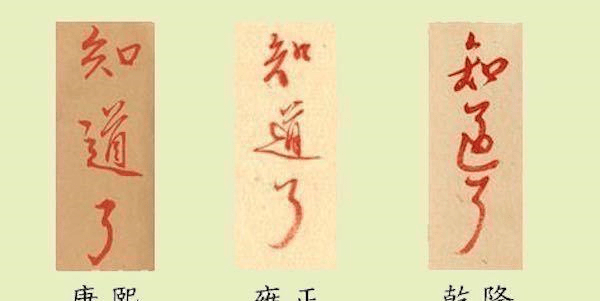 知道了
知道了
知道了
康熙
雍正
乾隆